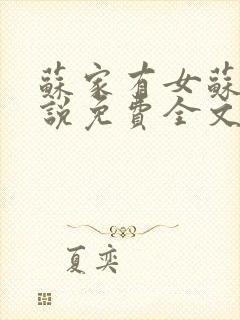 蘇家有女蘇
說免費全文
夏奕